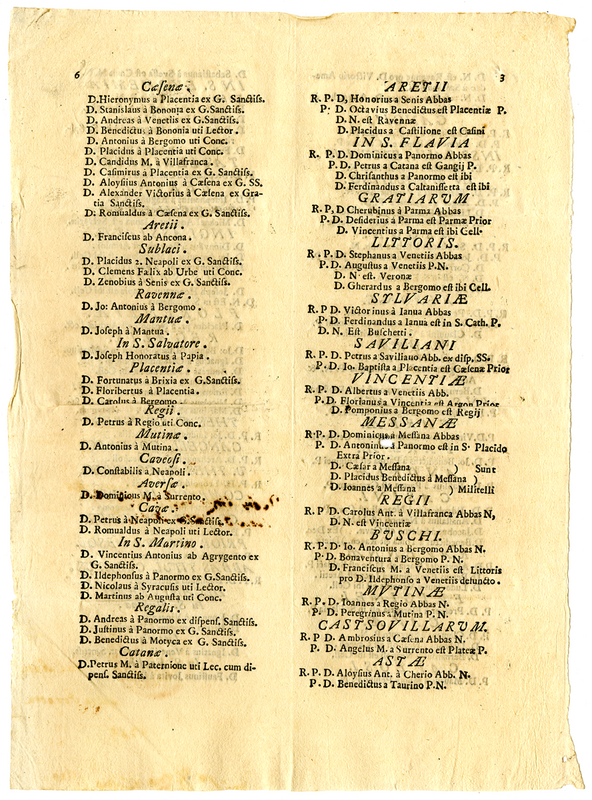 6
Cæsenæ.
D. Hieronymus à Placentia ex G. Sanctiss.
D. Stanislaus à Bononia ex G. Sanctiss.
D. Andreas à Venetiis ex G. Sanctiss.
D. Benedictus à Bononia uti Lector.
D. Antonius à Bergomo uti Conc.
D. Placidus à Placentia uti Conc.
D. Candidus M. à Villafranca.
D. Casimirus à Placentia ex G. Sanctiss.
D. Aloysius Antonius à Cæsena ex G. SS.
D. Alexander Victorius à Cæsena, ex Gra-
tia Sanctiss.
D: Romualdus à Cæsena ex G. Sanctiss.
Aretii.
D. Franciscus ab Ancona.
Sublaci.
D. Placidus 2. Neapoli ex G. Sanctiss.
D. Clemens Fælix ab Urbe uti Conc.
D. Zenobius à Senis ex G. Sanctiss.
Ravennæ.
D. Jo: Antonius à Bergomo.
Mantuæ.
D. Joseph à Mantua.
In S. Salvatore.
D. Joseph Honoratus à Papia.
Placentiæ.
D. Fortunatus à Brixia ex G. Sanctiss.
D. Floribertus à Placentia.
D. Carolus à Bergomo
Regii.
D. Petrus à Regio uti Conc.
Mutinæ.
D. Antonius à Mutina.
Caveosi.
D. Constabilis à Neapoli.
Aversæ.
D. Dominicus M. à Surrento.
Cavæ.
D. Petrus à Neapoli ex G. Sanctiss.
D. Romualdus à Neapoli uti Lector.
In S. Martino.
D. Vincentius Antonius ab Agrygento ex
G. Sanctiss.
D. Ildephonsus à Panormo ex G. Sanctiss.
D. Nicolaus à Syracusis uti Lector.
D. Martinus ab Augusta uti Conc.
Regalis.
D. Andreas à Panormo ex dispens. Sanctiss.
D. Justinus à Panormo ex G. Sanctiss.
D. Benedictus à Motyca ex G. Sanctiss.
Catanæ.
D. Petrus M. à Paternione uti Lec. cum di-
pens. Sanctiss.
3
ARETII
R. P. D, Honorius a Senis Abbas
P. D. Octavius Benedictus est Placentiæ P.
D. N. est Ravennæ
D. Placidus a Castilione est Casini
IN S. FLAVIA
R. P. D. Dominicus a Panormo Abbas
P. D. Petrus a Catana est Gangij P.
D. Chrisanthus a Panormo est ibi
D. Ferdinandus a Caltanissetta est ibi
GRATIARUM
R. P, D Cherubinus à Parma Abbas
P. D. Desiderius à Parma est Parmæ Prior
D. Vincentius a Parma est ibi Cell.
LITTORIS.
R. P. D. Stephanus a Venetiis Abbas
P. D. Augustus a Venetiis P.N.
D. N. est. Veronæ
D. Gherardus a Bergomo est ibi Cell.
SYLVARIÆ
R. P D. Victorinus à Ianua Abbas
P. D. Ferdinandus a Ianua est in S. Cath. P.
D. N. Est Buschetti.
SAVILIANI
R. P. D. Petrus a Saviliano Abb. ex disp. SS.
P. D. Io. Baptista a Placentia est Cæsenæ Prior
VINCENTIÆ
R. P. D. Albertus a Venetiis Abb.
P. D. Florianus a Vincentia est Argon Prior
D. Pomponius a Bergomo est Regij
MESSANÆ
R. P. D. Dominicus a Messana Abbas
P. D. Antoninus à Panormo est in S. Placido
Extra Prior.
D. Cæsar a Messana ) Sunt
D. Placidus Benedictus à Messana )
D. Ioannes a Messana ) Militelli
REGII
R. P D. Carolus Ant. à Villafranca Abbas N,
D. N. est Vincentiæ
BUSCHI.
R. P. D. Io. Antonius a Bergomo Abbas N.
P. D. Bonaventura a Bergomo P. N.
D. Franciscus M. a Venetiis est Littoris
pro D. Ildephonso a Venetiis defuncto.
MVTINÆ
R. P. D. Ioannes a Regio Abbas N.
P. D. Peregrinus a Mutina P. N.
CASTSOVILLARVM.
R. P D. Ambrosius a Cæsena Abbas N.
P. D. Angelus M. a Surrento est Plateæ P.
ASTÆ
R. P. D. Aloysius Ant. à Cherio Abb. N.
P. D. Benedictus a Taurino P.N.